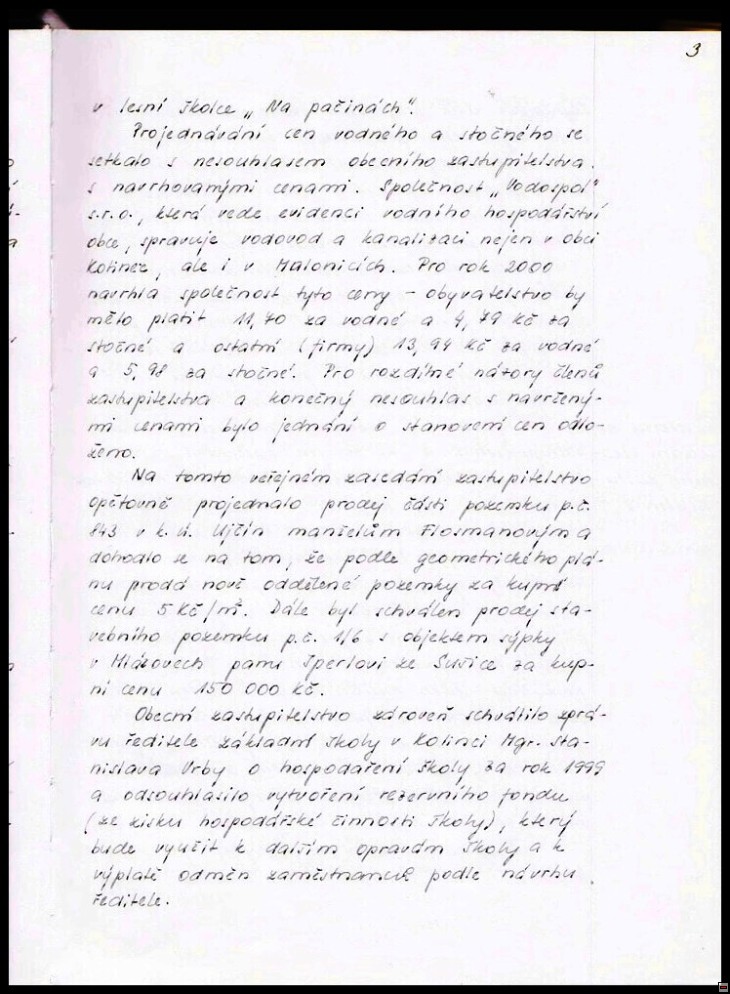 3
v lesní školce „Na pačinách".
Projednávání cen vodného a stočného se
setkalo s nesouhlasem obecního zastupitelstva
s navrhovanými cenami. Společnost „Vodospol"
s.r.o., která vede evidenci vodního hospodářství
obce, spravuje vodovod a kanalizaci nejen v obci
Kolinec, ale i v Malonicích. Pro rok 2000
navrhla společnost tyto ceny – obyvatelstvo by
mělo platit 11,70 za vodné a 4,79 Kč za
stočné a ostatní (firmy) 13,94 Kč za vodné
a 5,98 za stočné. Pro rozdílné názory členů
zastupitelstva a konečný nesouhlas s navržený-
mi cenami bylo jednání o stanovení cen odlo-
ženo.
Na tomto veřejném zasedání zastupitelstvo
opětovně projednalo prodej části pozemku p.č.
843 v k.ú. Ujčín manželům Flosmanovým a
dohodlo se na tom, že podle geometrického plá-
nu prodá nově oddělené pozemky za kupní
cenu 5 Kč/m². Dále byl schválen prodej sta-
vebního pozemku p.č. 1/6 s objektem sýpky
v Mlázovech panu Šperlovi ze Sušice za kup-
ní cenu 150 000 Kč.
Obecní zastupitelstvo zároveň schválilo zprá-
vu ředitele základní školy v Kolinci Mgr. Sta-
nislava Vrby o hospodaření školy za rok 1999
a odsouhlasilo vytvoření rezervního fondu
(ze zisku hospodářské činnosti školy), který
bude využit k dalším opravám školy a k
výplatě odměn zaměstnanců podle návrhu
ředitele.